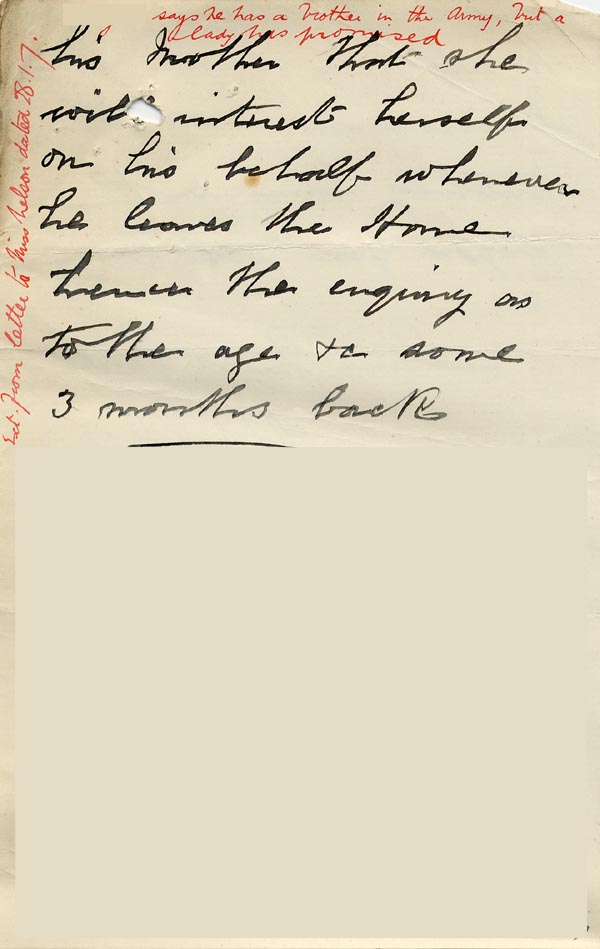 says he has a brother in the Army, but a
lady has promised
his Mother that she
will interest herself
on his behalf whenever
he leaves the Home
hence the enquiry as
to the age &c some
3 months back
Ext. from letter to Miss Nelson dated 28.1.7.